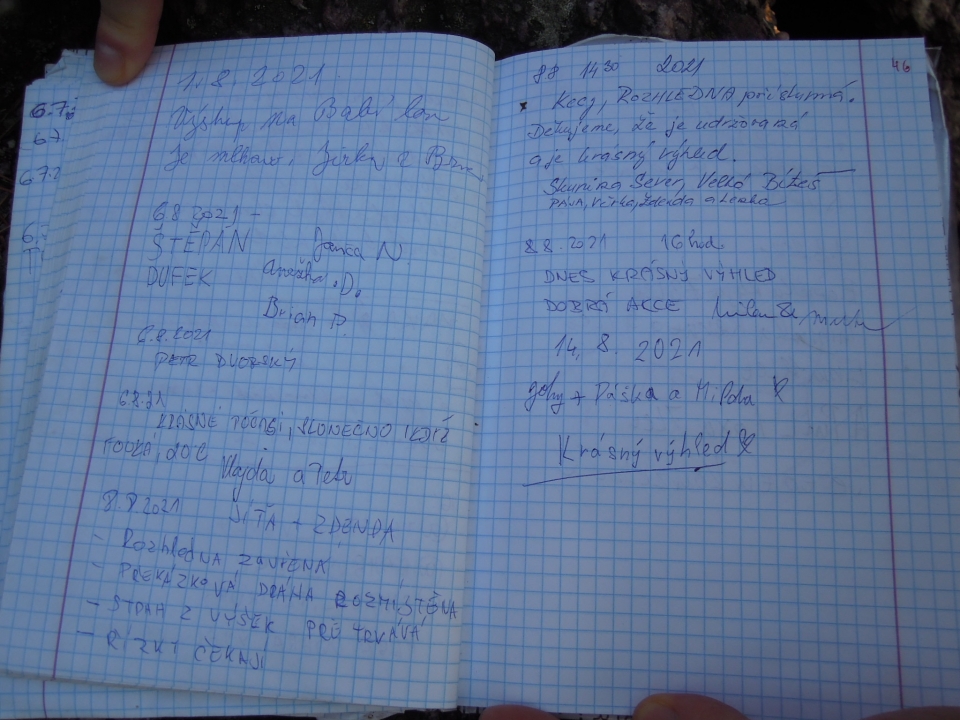 6.7.
67.
67.2
1.8.2021
Výstup na Babí lom
Je mlhavo. Jirka z Brna
6.8 2021 -
ŠTĚPÁN Janča N
DUFEK Anežka .D.
Brian P.
6.8.2021
PETR DVORSKÝ
6.8.21
KRÁSNÉ POČASÍ, SLONEČNO I KDYŽ
FOUKÁ, 20°C
Vlajda a Petr
8.8 2021 SÍŤA + ZDENDA
- ROZHLEDNA ZAVŘENÁ
- PŘEKÁŽKOVÁ DRÁHA ROZMÍSTĚNA
- STRACH Z VÝŠEK PŘETRVÁVÁ
- ŘÍZKY ČEKAJÍ
46
8 8 14 30 2021
Kecy, ROZHLEDNA přístupná.
Děkujeme, že je udržovaná
a je krásný výhled.
Skupina Sever, Velká Bíteš
PÁJA, Věrka, Zdenda a Lenka
8.8.2021 16 hod
DNES KRÁSNÝ VÝHLED
DOBRÁ AKCE Milan
14. 8. 2021
+ Páška a Mi
Krásný výhled